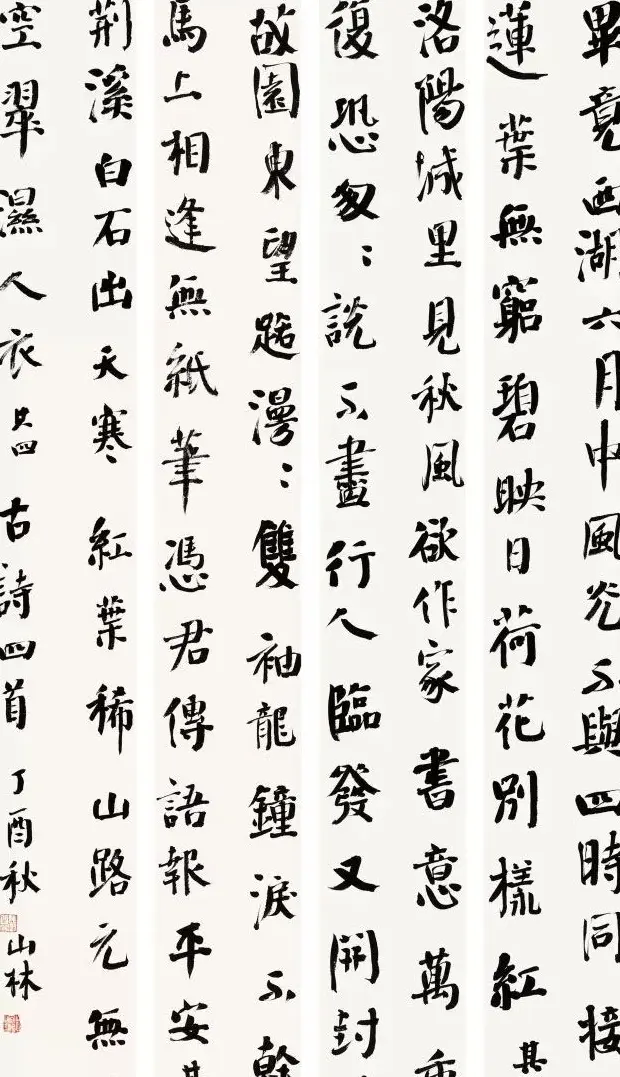 畢竟西湖六月中風光不與四時同接
蓮葉無窮碧映日荷花別樣紅其
洛陽城里見秋風欲作家書意萬
復恐匆〻說不盡行人臨發又開封
故園東望路漫〻雙袖龍鐘淚不
馬上相逢無紙筆憑君傳語報平安其
荆溪白石出天寒紅葉稀山路元無
空翠濕人衣其四古詩四首丁酉秋山林